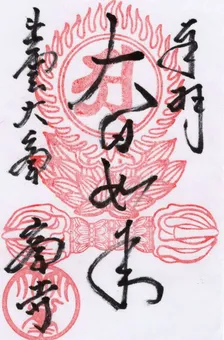 奉拝
大日如来
出雲大峯
峯寺